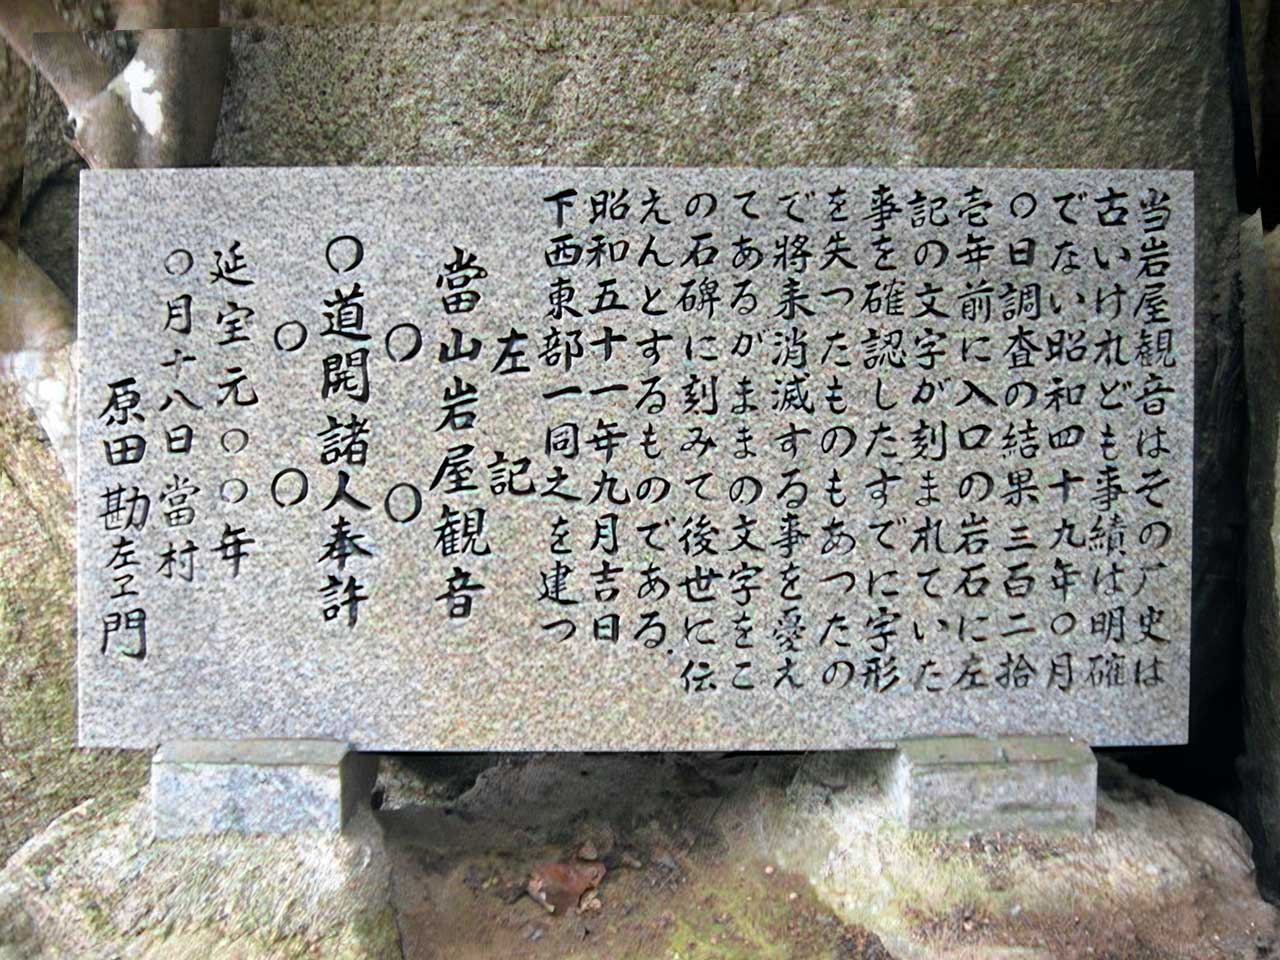 当岩屋観音はその厂史は
古いけれども事績は明確
でない昭和四十九年〇月
〇日調査の結果三百二拾
壱年前に入口の岩石に左
記の文字が刻まれていた
事を確認したすでに字形
を失つたものもあつたの
で将来消滅する事を憂え
てあるがままの文字をこ
の石碑に刻みて後世に伝
えんとするものである.
昭和五十一年九月吉日
下西東部一同之を建つ
左記
當山岩屋観音
〇〇
〇道開諸人奉許
〇〇
延宝元〇〇年
〇月十八日當村
原田勘左ヱ門